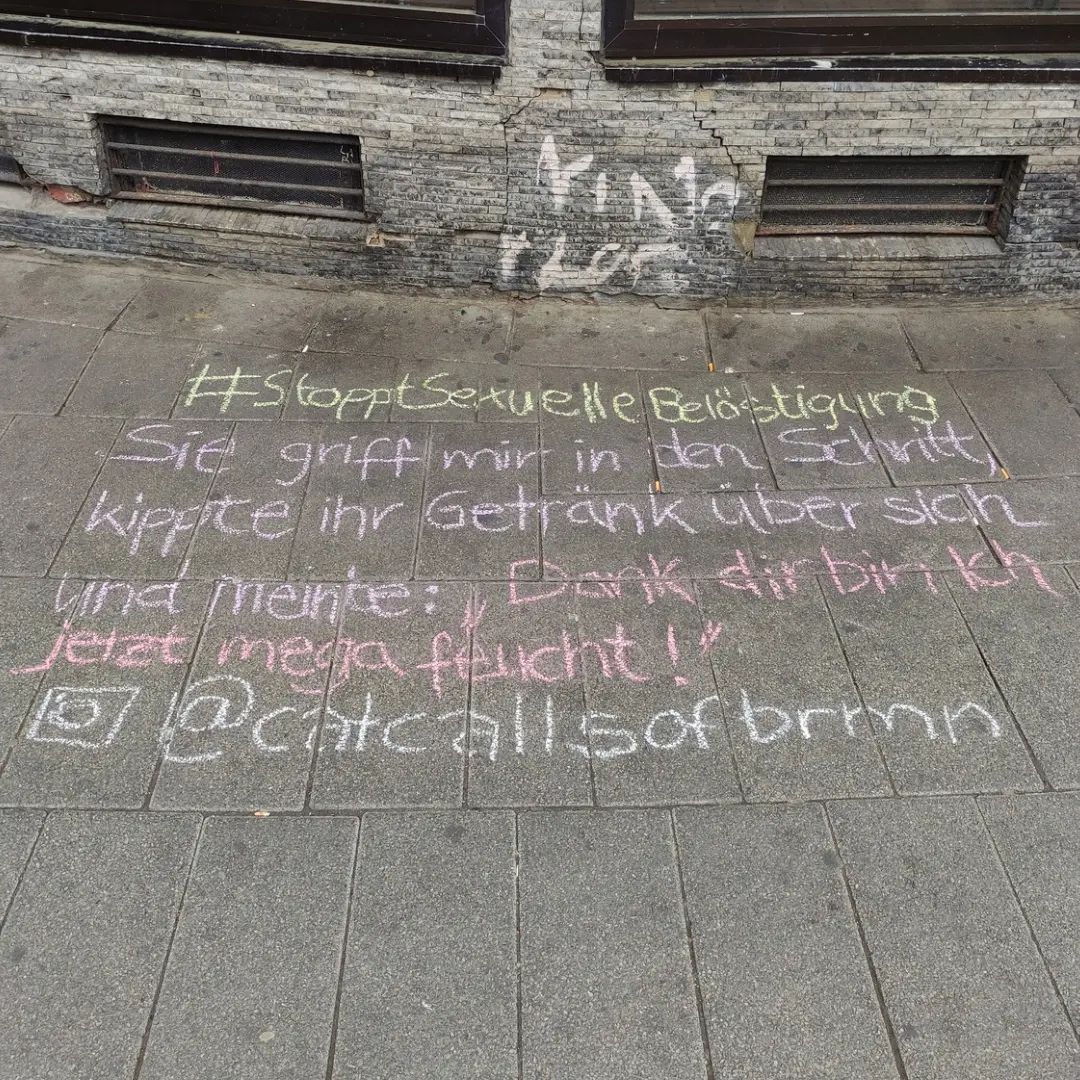 #StopptSexuelle Belästigung
Sie griff mir in den Schritt,
kippte ihr Getränk über sich
und meinte: „Dank dir bin Ich
jetzt mega feucht!"
@catcallsofbrmn